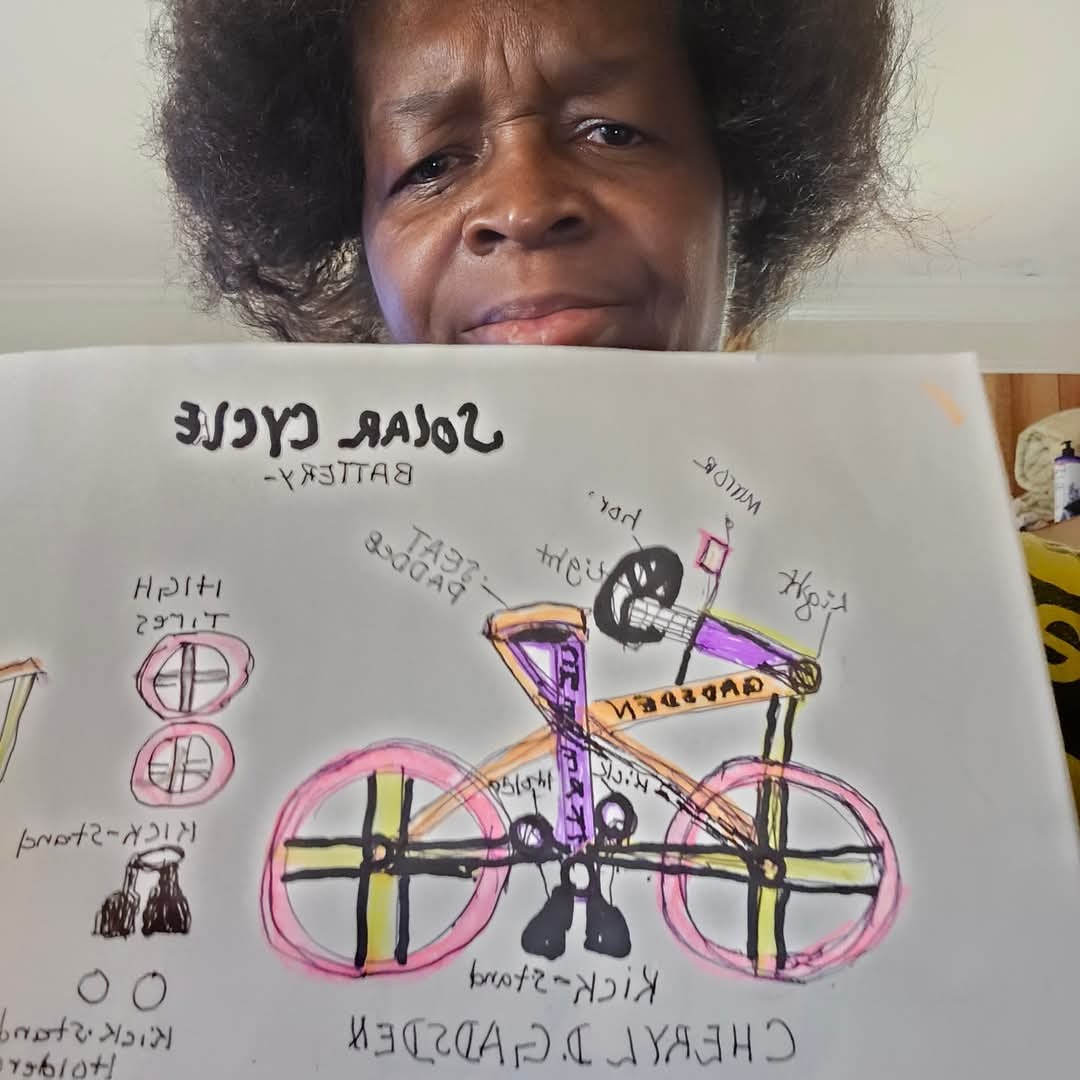 SOLAR CYCLE
BATTERY-
SEAT
PADDED
light
hor.
Light
HIGH
Tires
GADSDEN
Kick
Holder
Kick-Stand
Kick-Stand
Kick-Stand
Holder
CHERYL D. GADSDEN